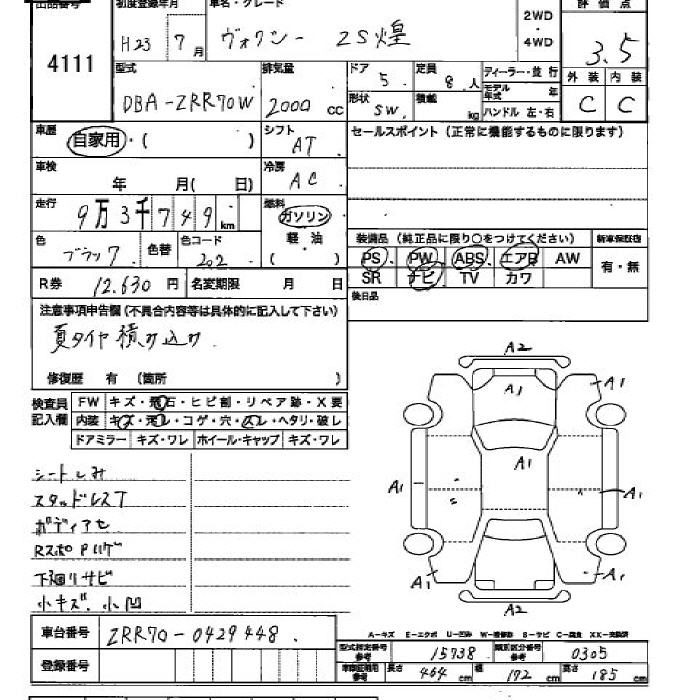 出品番号 初度登録年月 車名・グレード 2WD・4WD 評価点
4111 H23年 7月 ヴォクシー ZS煌 3.5
型式 排気量 ドア 5 定員 8人 ディーラー・並行 外装 内装
DBA-ZRR70W 2000cc 形状 SW 積載 kg モデル年式 年 ハンドル 左・右 C C
車歴 自家用・( ) シフト AT セールスポイント (正常に機能するものに限ります)
車検 年 月( 日) 冷房 AC
走行 9万3千749km 燃料 ガソリン・軽油( )
色 ブラック 色替 色コード 202 装備品 (純正品に限り○をつけてください) 新車保証書
PS PW ABS エアB AW 有・無
R券 12,630円 名変期限 月 日 SR ナビ TV カワ
注意事項申告欄(不具合内容等は具体的に記入して下さい) 後日品
夏タイヤ積み込み
修復歴 有 (箇所 )
検査員記入欄 FW キズ・飛石・ヒビ割・リペア跡・X要
内装 キズ・汚レ・コゲ・穴・スレ・ヘタリ・破レ
ドアミラー キズ・ワレ ホイール・キャップ キズ・ワレ
A2
A1 A1
A1
A1 A1
A1 A1
A2
シートしみ
スタッドレスT
ボディアセ
RスポPハゲ
下廻リサビ
小キズ、小凹
A-キズ E-エクボ U-凹み W-補修跡 S-サビ C-腐食 XX-交換済
車台番号 ZRR70-0429448
型式指定番号 参考 15738 類別区分番号 参考 0305
登録番号 車検証明用 参考 長さ 464cm 幅 172cm 高さ 185cm